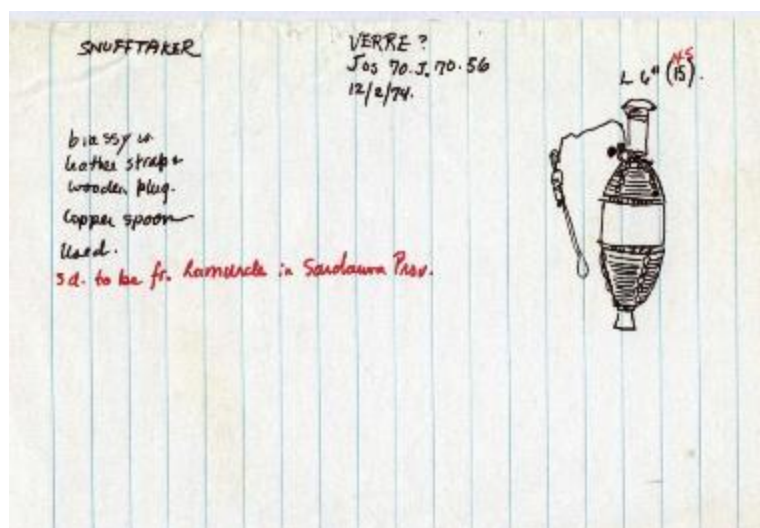 SNUFFTAKER
VERRE ?
Jos 70.J.70.56
12/2/74.
L 6" (15).
brassy w
leather strap &
wooden plug.
Copper spoon
Used.
sd. to be fr. in Sardauna Prov.